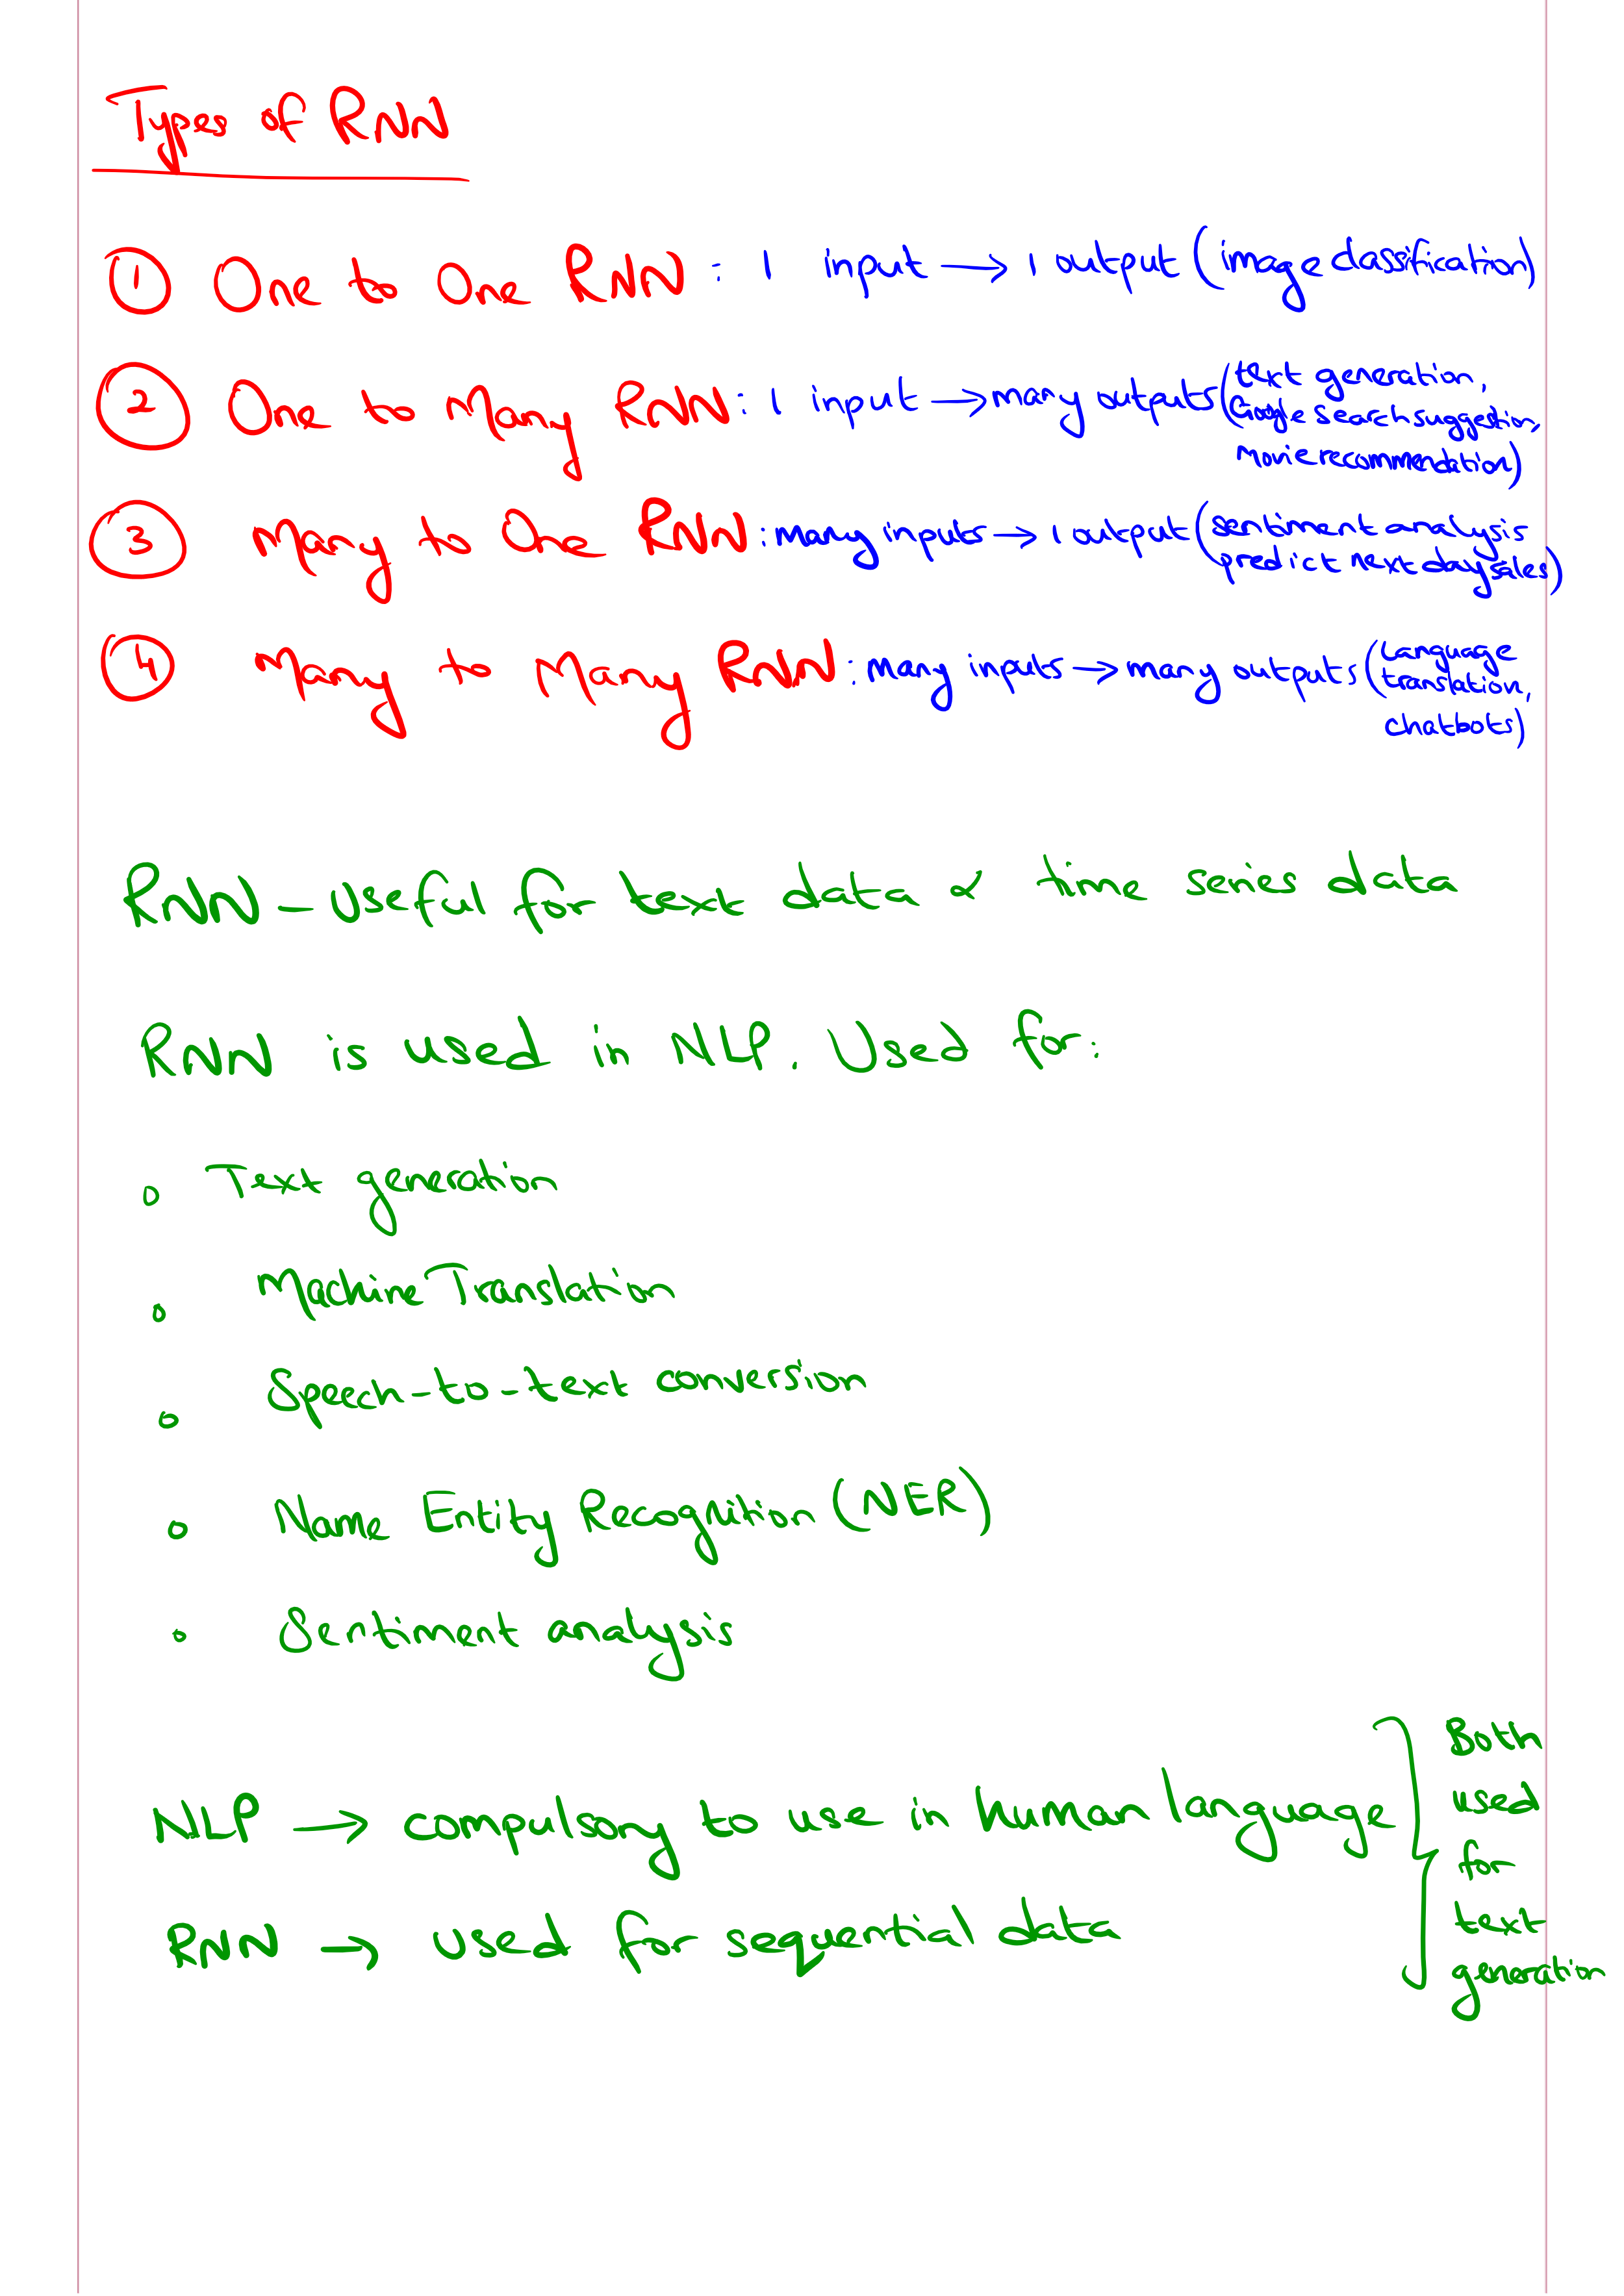 Types of RNN
① One to One RNN: 1 input → 1 output (image classification)
② One to Many RNN: 1 input → many outputs (text generation,
Google search suggestion,
Movie recommendation)
③ Many to One RNN: Many inputs → 1 output (sentiment analysis
predict next day sales)
④ Many to Many RNN: Many inputs → many outputs (Language
translation,
chatbots)
RNN - Useful for text data & time series data
RNN is used in NLP. Used for:
◦ Text generation
◦ Machine Translation
◦ Speech-to-text conversion
◦ Name Entity Recognition (NER)
◦ Sentiment analysis
NLP → compulsory to use in human language
RNN → used for sequential data
Both
used
for
text
generation